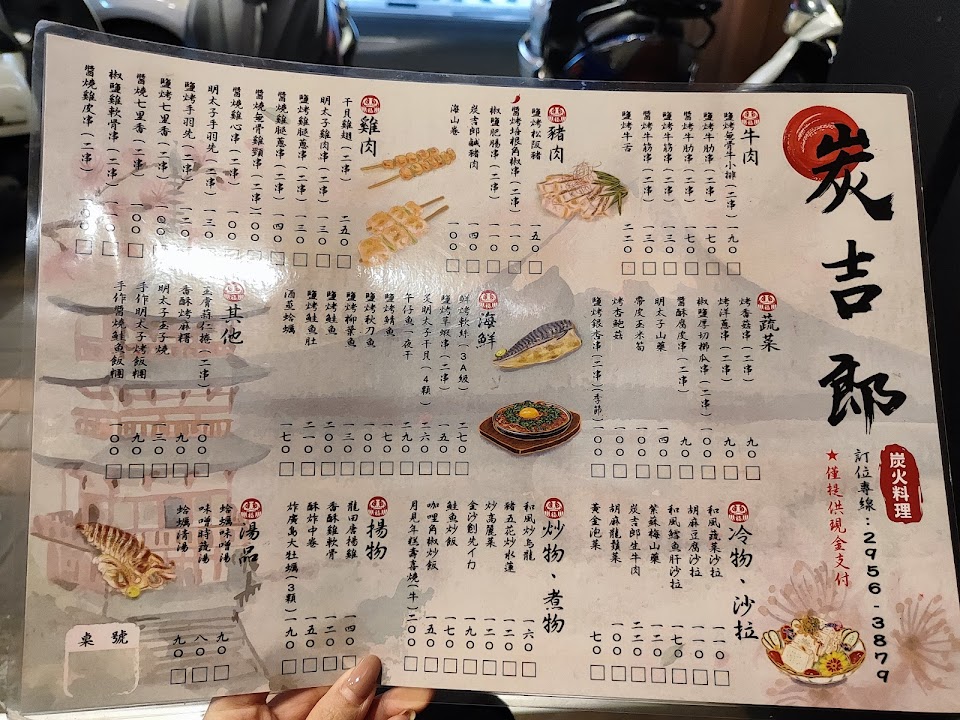 炭吉郎
炭火料理
訂位專線：2956-3879
★僅提供現金支付
牛肉
鹽烤無骨牛小排(二串) 一九〇
鹽烤牛肋串(二串) 一七〇
醬烤牛肋串(二串) 一七〇
鹽烤牛筋串(二串) 一三〇
醬烤牛筋串(二串) 一三〇
鹽烤牛舌 二二〇
豬肉
鹽烤松阪豬 一五〇
醬烤培根角椒串(二串) 一一〇
椒鹽肥腸串(二串) 一一〇
炭吉郎鹹豬肉 一四〇
海山卷 一〇〇
雞肉
干貝雞翅(二串) 二五〇
明太子雞肉串(二串) 一三〇
鹽烤雞腿蔥串(二串) 一三〇
醬燒雞腿蔥串(二串) 一四〇
醬燒無骨雞頸串(二串) 一〇〇
醬燒雞心串(二串) 一〇〇
明太子手羽先(二串) 一三〇
鹽烤手羽先(二串) 一二〇
鹽烤七里香(二串) 一四〇
醬燒七里香(二串)
椒鹽雞軟骨串(二串) 一〇〇
醬燒雞皮串(二串)
蔬菜
烤香菇串(二串) 九〇
烤洋蔥串(二串) 九〇
椒鹽厚切櫛瓜串(二串) 一〇〇
醬酥腐皮串(二串) 九〇
明太子山藥 一四〇
帶皮玉米筍 一〇〇
烤杏鮑菇 一〇〇
鹽烤銀杏串(二串)(季節) 一〇〇
海鮮
鮮烤軟絲(3A級) 二七〇
鹽烤草蝦串(二串) 一五〇
炙明太子干貝(4顆) 二六〇
午仔魚一夜干 二九〇
鹽烤鯖魚 一七〇
鹽烤秋刀魚 一〇〇
鹽烤柳葉魚 一三〇
鹽烤鮭魚 二〇〇
鹽烤鮭魚肚 二一〇
酒蒸蛤蠣 一七〇
其他
一〇〇
香酥烤麻糬 九〇
明太子玉子燒 一三〇
手作明太子烤飯糰 九〇
手作醬燒鮭魚飯糰 一〇〇
冷物、沙拉
和風蔬菜沙拉 一〇〇
胡麻豆腐沙拉 一一〇
和風鱈魚肝沙拉 一七〇
紫蘇梅山藥 一一〇
炭吉郎生牛肉 二二〇
胡麻龍鬚菜 一〇〇
黃金泡菜 七〇
炒物、煮物
和風炒烏龍 一六〇
豬五花炒水蓮 一二〇
炒高麗菜 一二〇
金沙劍先イカ 一九〇
鮭魚炒飯 一二〇
咖哩角椒炒飯 一五〇
月見年糕壽喜燒(牛) 二〇〇
揚物
龍田唐揚雞 一四〇
香酥雞軟骨 一二〇
酥炸中卷 一五〇
炸廣島大牡蠣(3顆) 一九〇
湯品
蛤蠣味噌湯 九〇
味噌時蔬湯 八〇
蛤蠣清湯 九〇
桌號